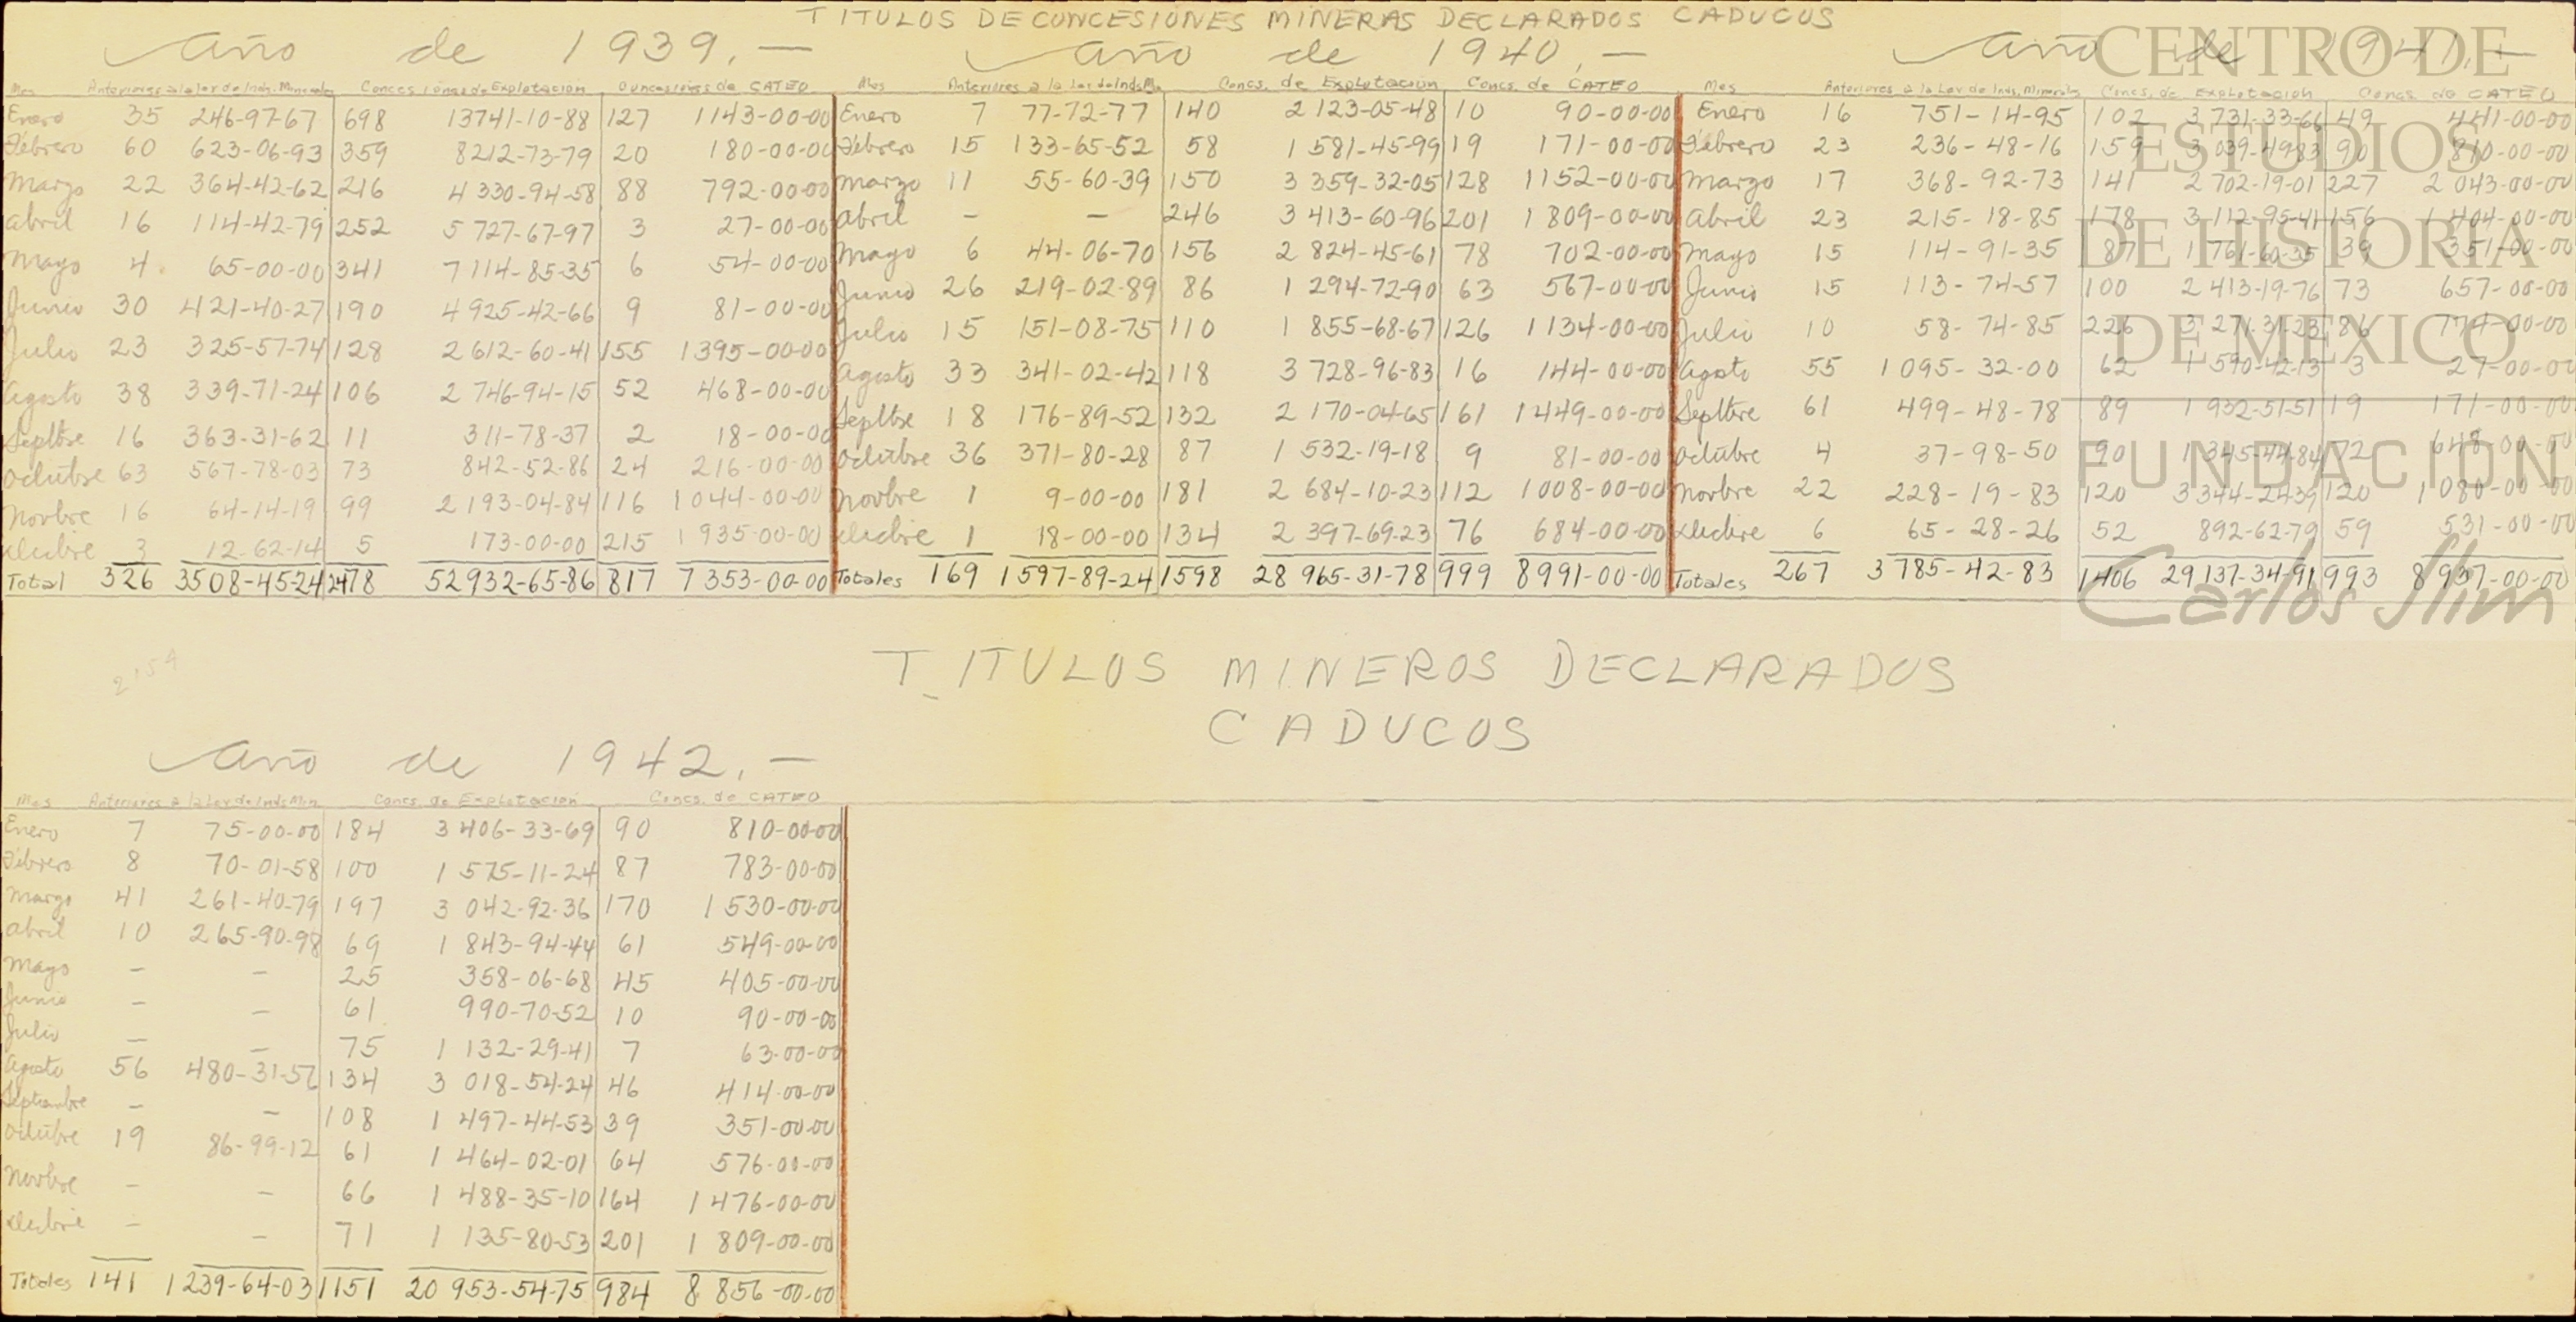 TITULOS DE CONCESIONES MINERAS DECLARADOS CADUCOS
Año de 1939.—
Mes Anteriores a la Ley de Inds. Minerales Concesiones de Explotacion Concesiones de CATEO
Enero 35 246-97-67 698 13741-10-88 127 1143-00-00
Febrero 60 623-06-93 359 8212-73-79 20 180-00-00
Marzo 22 364-42-62 216 4 330-94-58 88 792-00-00
Abril 16 114-42-79 252 5 727-67-97 3 27-00-00
Mayo 4 65-00-00 341 7 114-85-35 6 54-00-00
Junio 30 421-40-27 190 4 925-42-66 9 81-00-00
Julio 23 325-57-74 128 2 612-60-41 155 1395-00-00
Agosto 38 339-71-24 106 2 746-94-15 52 468-00-00
Sepbre 16 363-31-62 11 311-78-37 2 18-00-00
Octubre 63 567-78-03 73 842-52-86 24 216-00-00
Novbre 16 64-14-19 99 2 193-04-84 116 1 044-00-00
Dicbre 3 12-62-14 5 173-00-00 215 1 935-00-00
Total 326 3508-45-24 2478 52932-65-86 817 7 353-00-00
Año de 1940.—
Mes Anteriores a la Ley de Inds Mi. Concs. de Explotacion Concs. de CATEO
Enero 7 77-72-77 140 2 123-05-48 10 90-00-00
Febrero 15 133-65-52 58 1 581-45-99 19 171-00-00
Marzo 11 55-60-39 150 3 359-32-05 128 1152-00-00
Abril — — 246 3 413-60-96 201 1 809-00-00
Mayo 6 44-06-70 156 2 824-45-61 78 702-00-00
Junio 26 219-02-89 86 1 294-72-90 63 567-00-00
Julio 15 151-08-75 110 1 855-68-67 126 1134-00-00
Agosto 33 341-02-42 118 3 728-96-83 16 144-00-00
Sepbre 18 176-89-52 132 2 170-04-65 161 1449-00-00
Octubre 36 371-80-28 87 1 532-19-18 9 81-00-00
Novbre 1 9-00-00 181 2 684-10-23 112 1008-00-00
Dicbre 1 18-00-00 134 2 397-69-23 76 684-00-00
Totales 169 1 597-89-24 1598 28 965-31-78 999 8991-00-00
Año de 1941.—
Mes Anteriores a la Ley de Inds. Minerales Concs. de Explotacion Concs. de CATEO
Enero 16 751-14-95 102 3 731-33-66 49 441-00-00
Febrero 23 236-48-16 159 3 039-49-83 90 810-00-00
Marzo 17 368-92-73 141 2 702-19-01 227 2 043-00-00
Abril 23 215-18-85 178 3 112-95-41 156 1 404-00-00
Mayo 15 114-91-35 87 1 761-60-35 39 351-00-00
Junio 15 113-74-57 100 2 413-19-76 73 657-00-00
Julio 10 58-74-85 226 3 271-31-23 86 774-00-00
Agosto 55 1 095-32-00 62 1 590-42-13 3 27-00-00
Sepbre 61 499-48-78 89 1 932-51-51 19 171-00-00
Octubre 4 37-98-50 90 1 345-44-84 72 648-00-00
Novbre 22 228-19-83 120 3 344-24-39 120 1 080-00-00
Dicbre 6 65-28-26 52 892-62-79 59 531-00-00
Totales 267 3 785-42-83 1406 29 137-34-91 993 8 937-00-00
CENTRO DE
ESTUDIOS
DE HISTORIA
DE MEXICO
FUNDACION
Carlos Slim
2154
TITULOS MINEROS DECLARADOS
CADUCOS
Año de 1942.—
Mes Anteriores a la Ley de Inds Min. Concs. de Explotacion Concs. de CATEO
Enero 7 75-00-00 184 3 406-33-69 90 810-00-00
Febrero 8 70-01-58 100 1 575-11-24 87 783-00-00
Marzo 41 261-40-79 197 3 042-92-36 170 1 530-00-00
Abril 10 265-90-98 69 1 843-94-44 61 549-00-00
Mayo — — 25 358-06-68 45 405-00-00
Junio — — 61 990-70-52 10 90-00-00
Julio — — 75 1 132-29-41 7 63-00-00
Agosto 56 480-31-56 134 3 018-54-24 46 414-00-00
Septiembre — — 108 1 497-44-53 39 351-00-00
Octubre 19 86-99-12 61 1 464-02-01 64 576-00-00
Novbre — — 66 1 488-35-10 164 1 476-00-00
Dicbre — — 71 1 135-80-53 201 1 809-00-00
Totales 141 1 239-64-03 1151 20 953-54-75 984 8 856-00-00